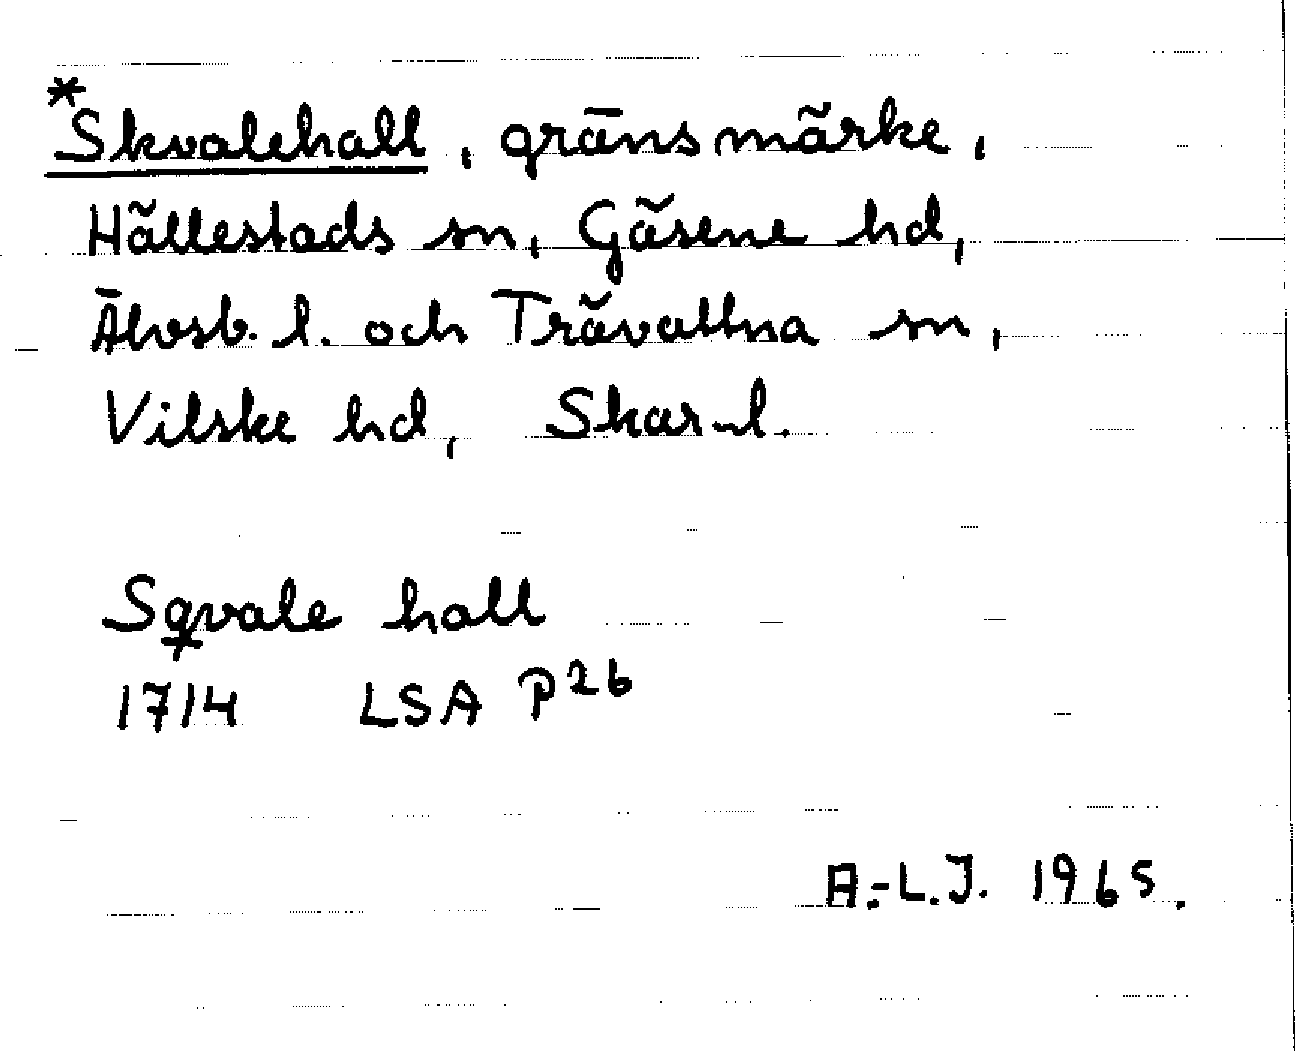 *Skvalehall, gränsmärke,
Hällestads sn, Gäsene hd,
Älvsb. l. och Trävattna sn,
Vilske hd, Skar-l.
Sqvale hall
1714 LSA P26
A.-L.J. 1965.